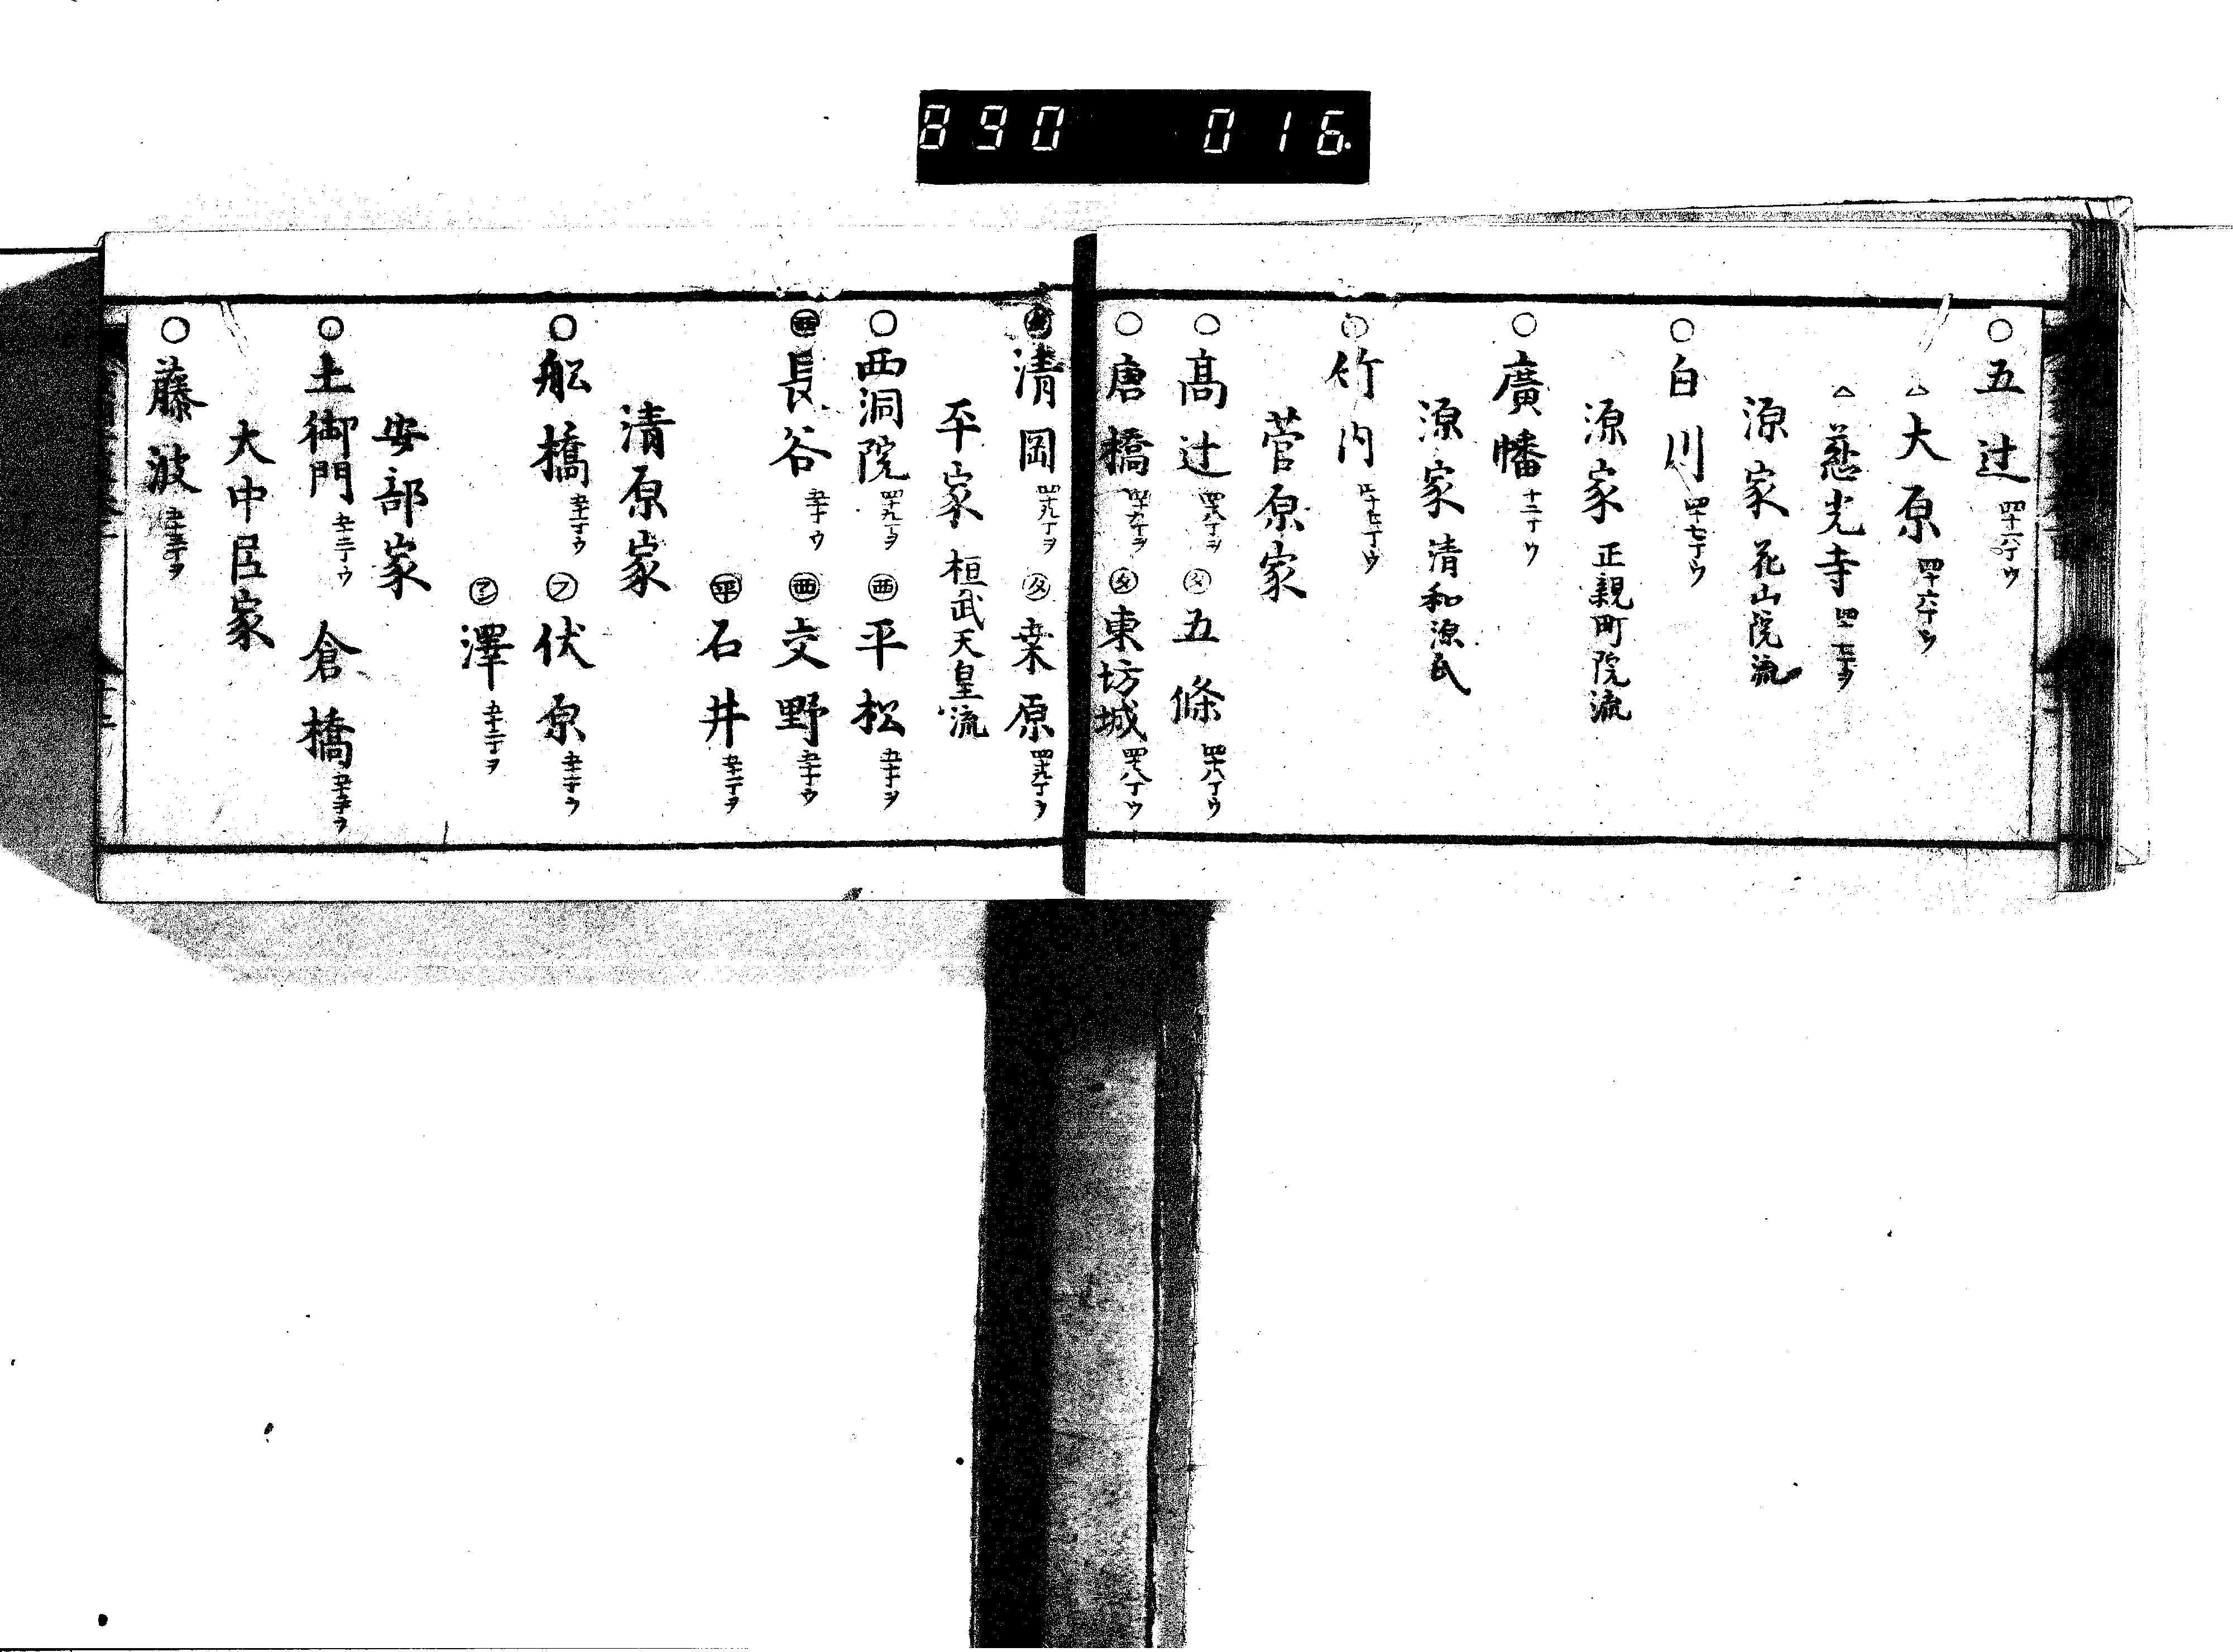 890 016.
○五辻 四十六丁ウ
△大原 四十六丁ウ
△慈光寺 四十七丁ヲ
源家 花山院流
○白川 四十七丁ウ
源家 正親町院流
○廣幡 十二丁ウ
源家 清和源氏
○竹内 四十七丁ウ
菅原家
○高辻 四十八丁ヲ 五條 四十八丁ウ
○唐橋 東坊城 四十八丁ウ
清岡 四十九丁ヲ 桒原 四十九丁ウ
平家 桓武天皇流
○西洞院 四十九丁ヲ ㊄西 平松 五十丁ヲ
西 長谷 五十丁ウ 西 交野 五十丁ウ
平 石井 五十一丁ヲ
清原家
○舩橋 五十一丁ウ フ 伏原 五十一丁ウ
澤 五十二丁ヲ
安部家
○土御門 五十二丁ウ 倉橋
大中臣家
○藤波